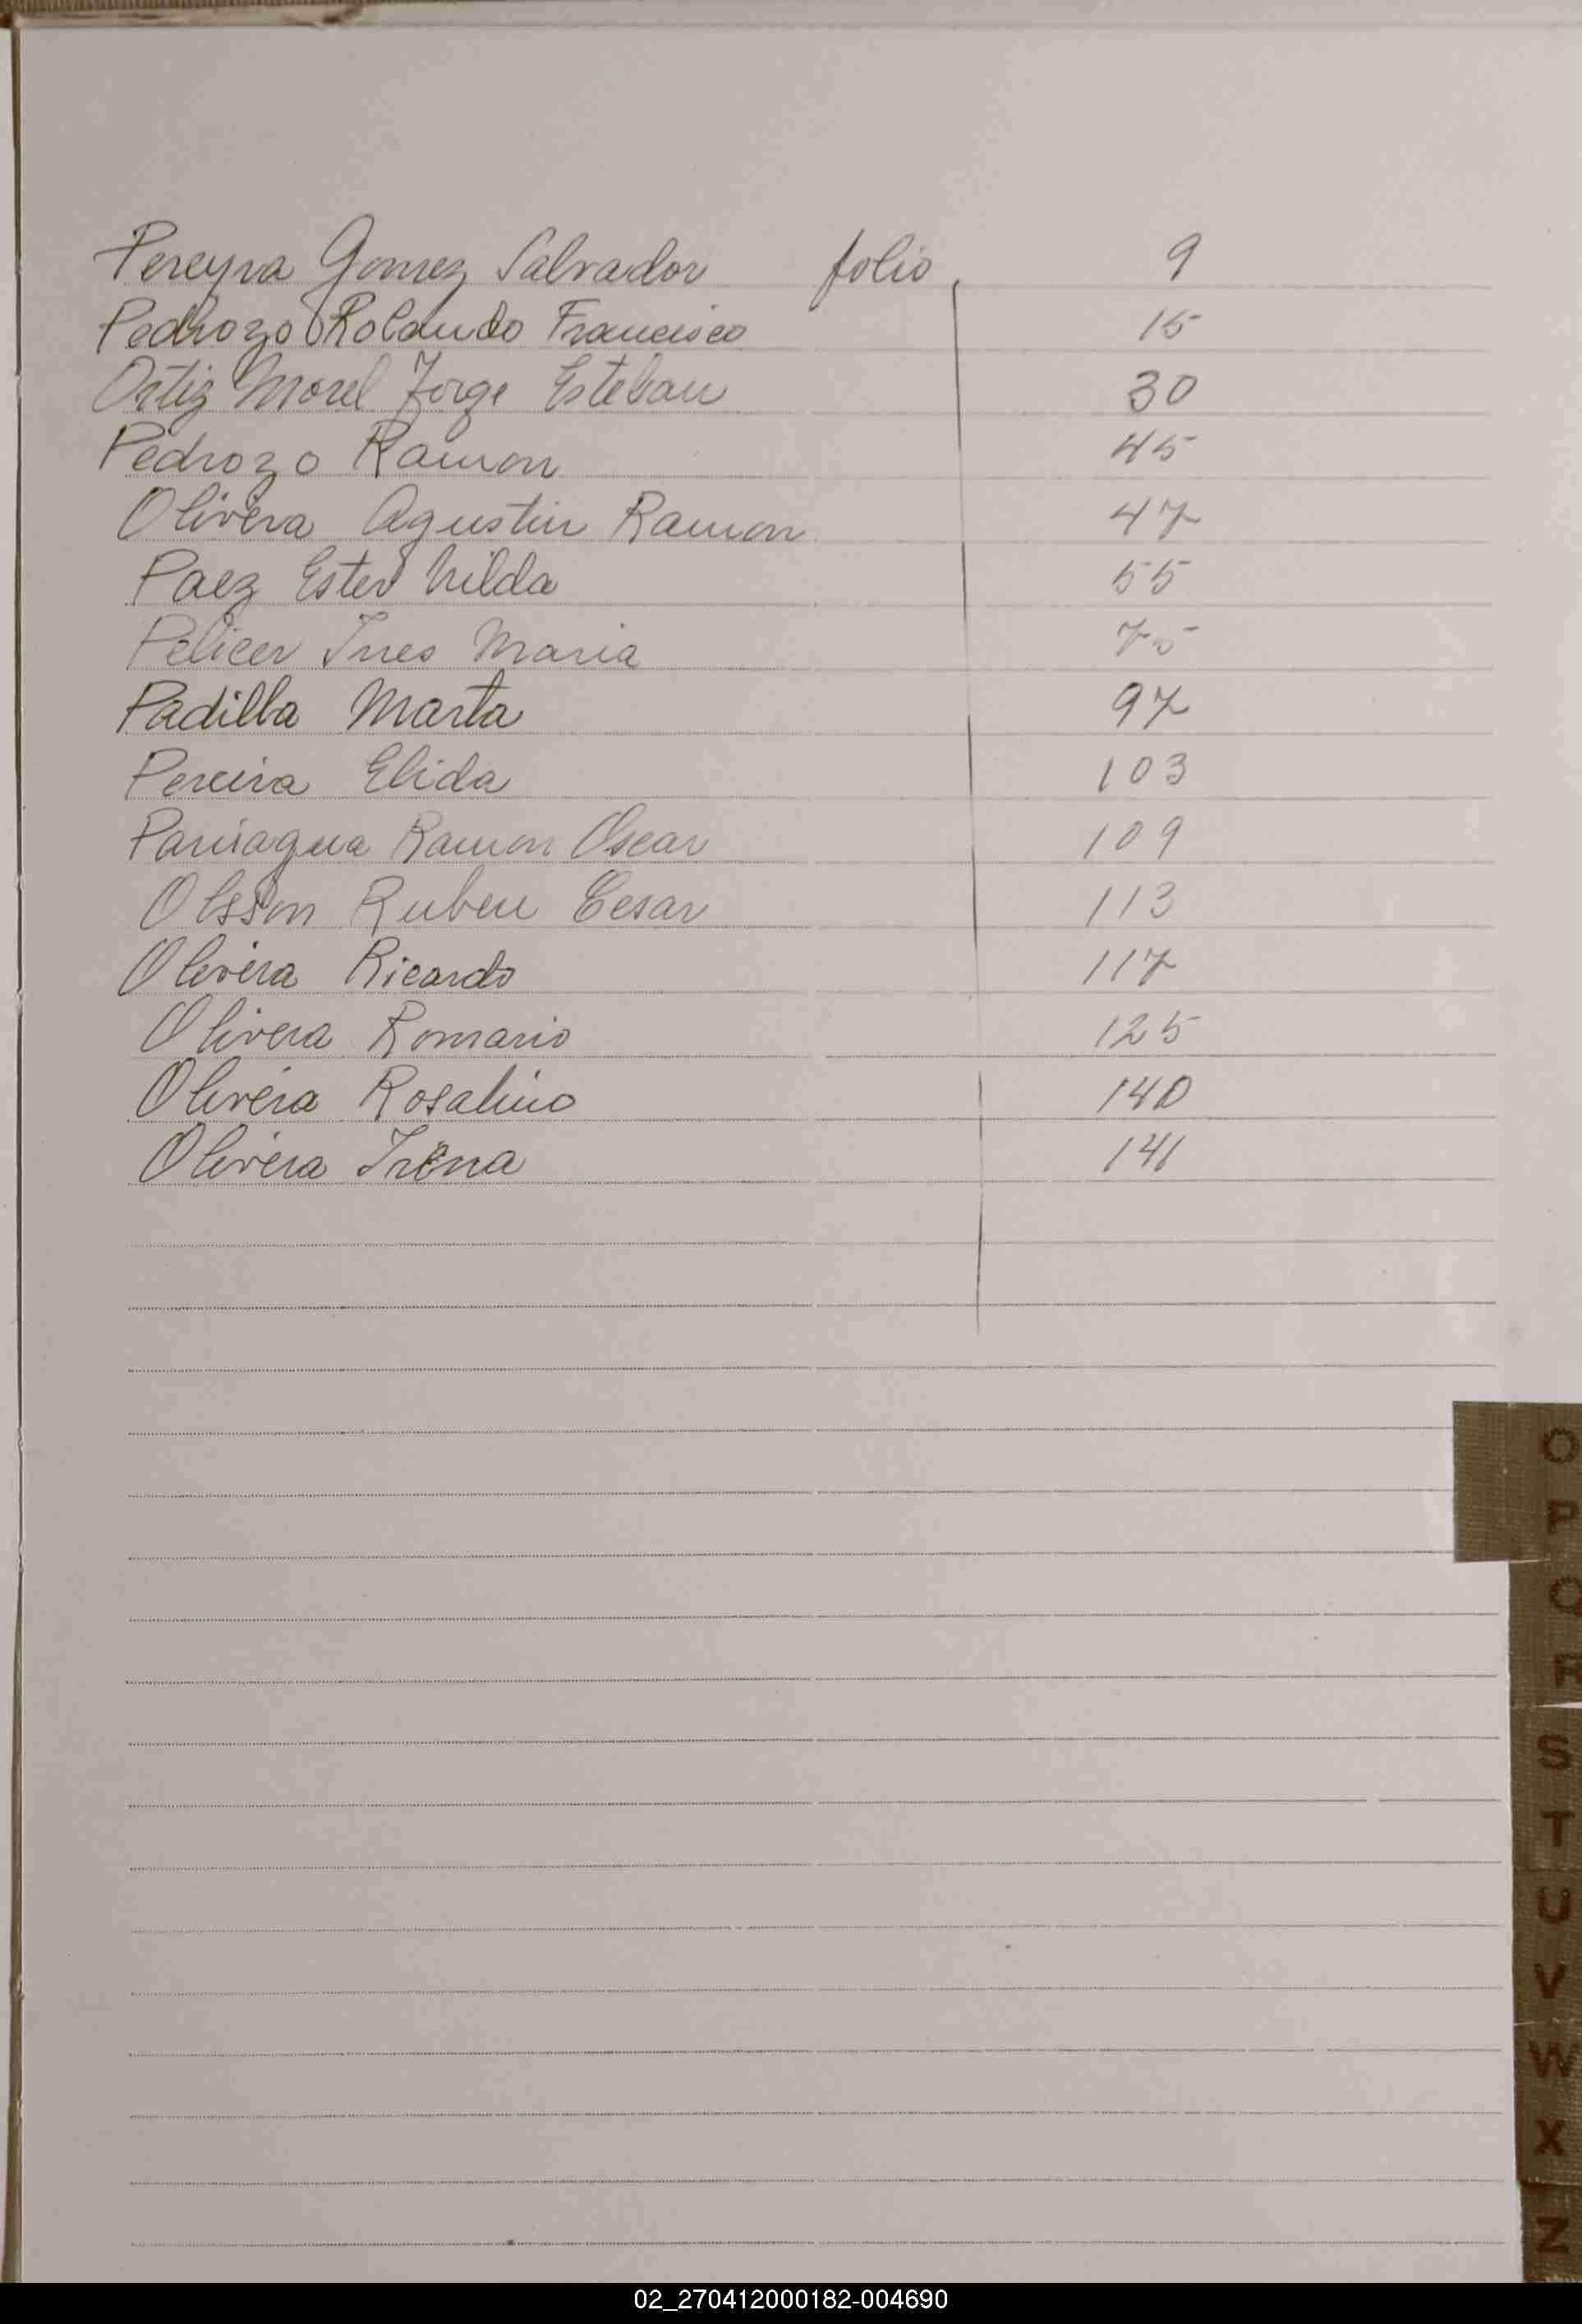 Pereyra Gomez Salvador folio 9
Pedrozo Rolando Francisco 15
Ortiz Morel Jorge Esteban 30
Pedrozo Ramon 45
Olivera Agustin Ramon 47
Paez Ester Nilda 55
Pelicer Ines Maria 75
Padilla Marta 97
Pereira Elida 103
Paniagua Ramon Oscar 109
Olsson Ruben Cesar 113
Olivera Ricardo 117
Olivera Romario 125
Olivera Rosalino 140
Olivera Irena 141
O
P
Q
R
S
T
U
V
W
X
Z
02_270412000182-004690